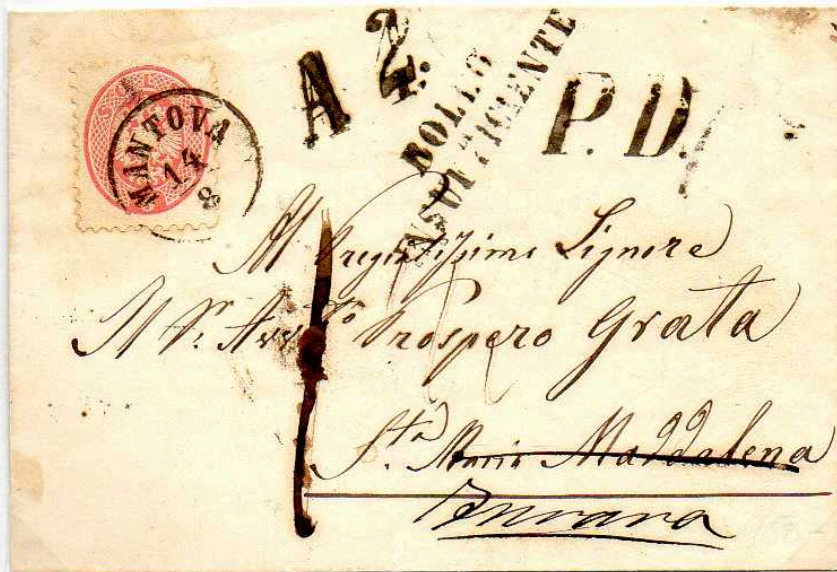 MANTOVA
14
8
A 2.
BOLLO
INSUFFICIENTE
P. D.
Al Pregiatissimo Signore
Il Sr. Avvto Prospero Grata
Sta Maria Maddalena